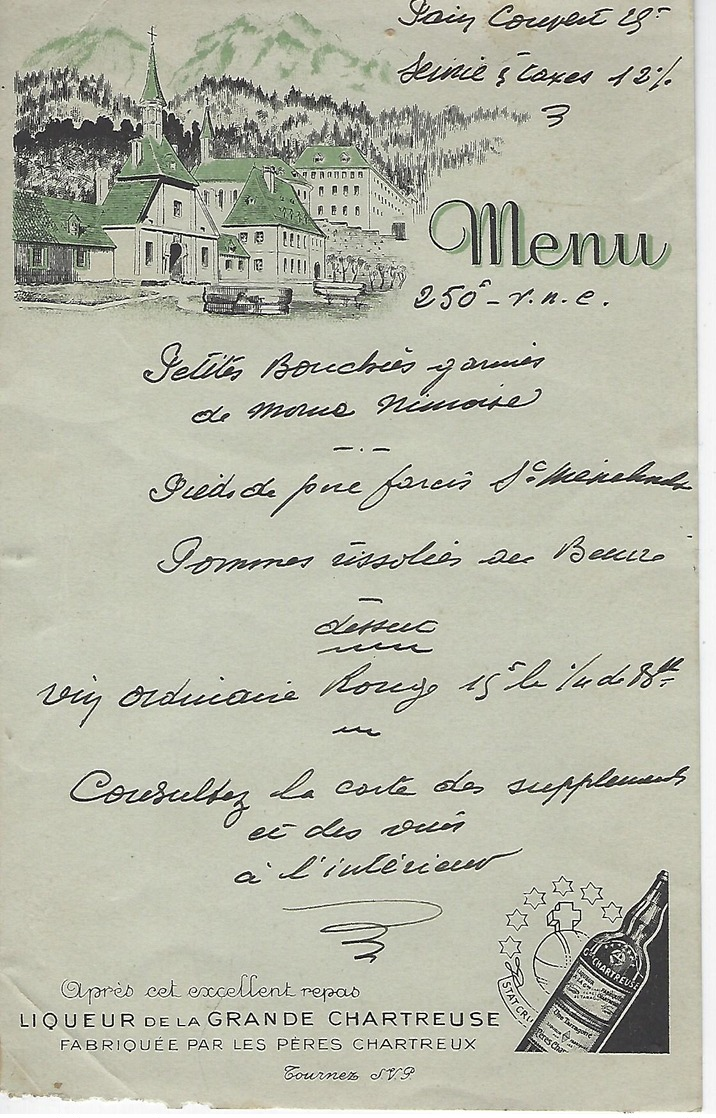 Pain Couvert 25f
Service & taxes 12%
Menu
250f - v.n.c.
Petites Bouchées garnies
de morue nimoise
Pieds de porc farcis Ste Menehould
Pommes rissolées au Beurre
dessert
vin ordinaire Rouge 15f le 1/4 de Blle
Consultez la carte des suppléments
et des vins
à l'intérieur
Après cet excellent repas
LIQUEUR DE LA GRANDE CHARTREUSE
FABRIQUÉE PAR LES PÈRES CHARTREUX
Tournez S.V.P.
STAT CRUX
Gde CHARTREUSE
Une Tarragone
Pères Char